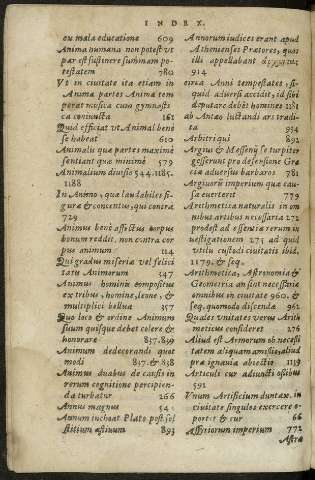 INDEX.
eu mala educatione 609
Anima humana non potest vt
par est sustinere summam po-
testatem 780
Vt in ciuitate ita etiam in
Anima partes Anima tem
perat musica cum gymnasti
ca coniuncta 161
Quid efficiat vt Animal bene
se habeat 610
Animalis quæ partes maximè
sentiant quæ minimè 579
Animalium diuisio 544.1185.
1188
In Animo, qua laudabiles fi-
guræ & concentus, qui contrà
729
Animus benè affectus corpus
bonum reddit. non contrà cor
pus animum 114
Qui gradus miseriæ vel felici
tatis Animorum 547
Animus hominis compositus
ex tribus, homine, leone, &
multiplici bellua 357
Quo loco & ordine Animum
suum quisque debet colere &
honorare 837.839
Animum dedecorandi quot
modi 817.& 838
Animus duabus de causis in
rerum cognitione percipien-
da turbatur 266
Annus magnus 54
Annum inchoat Plato post sol
stitium æstiuum 893
Annorum iudices erant apud
Athenienses Prætores, quos
illi appellabant
914
circa Anni tempestates, si-
quid aduersi accidit, id sibi
deputare debet homines 1181
ab Antæo luctandi ars tradi-
ta 934
Arbitriqui 892
Argiui & Messenij se turpiter
gesserunt pro defensione Græ
cia aduersus barbaros 781
Argiuorũ imperium quæ cau-
sa euerterit 779
Arithmetica naturalis in om
nibus artibus necessaria 272
prodest ad essentiæ rerum in
uestigationem 275 ad quid
vtilis custodi ciuitatis ibid.
1179, & seq.
Arithmetica, Astronomia &
Geometria an sint necessariæ
omnibus in ciuitate 960. &
seq. quomodo discendæ 962
Quales vnitates verus Arith
meticus consideret 276
Aliud est Armorum ob necessi
tatem aliquam amissio, aliud
præ ignauia abiectio 1139
Articuli cur adiuncti ossibus
591
Vnum Artificium duntax. in
ciuitate singulos exercere o-
portet & cur 66
Assyriorum imperium 772
Astra